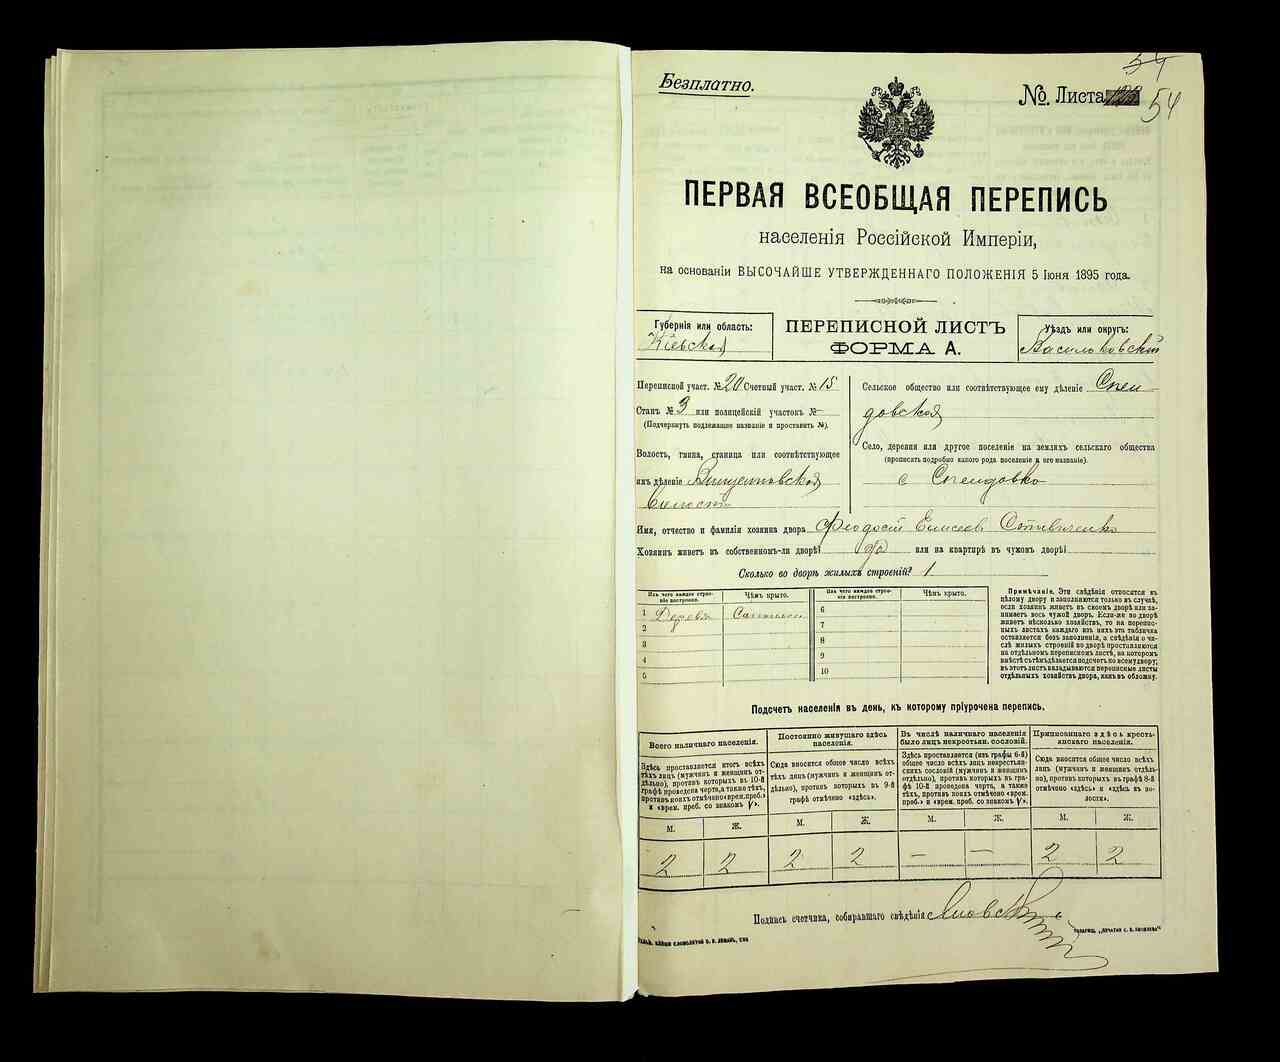 54
Безплатно.
№. Листа 54
ПЕРВАЯ ВСЕОБЩАЯ ПЕРЕПИСЬ
населенія Россійской Имперіи,
на основаніи ВЫСОЧАЙШЕ УТВЕРЖДЕННАГО ПОЛОЖЕНІЯ 5 Іюня 1895 года.
Губернія или область:
Кіевская
ПЕРЕПИСНОЙ ЛИСТЪ
ФОРМА А.
Уѣздъ или округъ:
Васильковскій
Переписной участ. № 20 Счетный участ. № 15
Станъ № 3 или полицейскій участокъ №
(Подчеркнуть подлежащее названіе и проставить №).
Волость, гмина, станица или соотвѣтствующее
имъ дѣленіе Винцентовская
волость
Сельское общество или соотвѣтствующее ему дѣленіе Спен-
довская
Село, деревня или другое поселеніе на земляхъ сельскаго общества
(прописать подробно какого рода поселеніе и его названіе).
с Спендовка
Имя, отчество и фамилія хозяина двора Феодосій Елисеев
Хозяинъ живетъ въ собственномъ-ли дворѣ? да или на квартирѣ въ чужомъ дворѣ?
Сколько во дворѣ жилыхъ строеній? 1
Изъ чего каждое строеніе построено.
Чѣмъ крыто.
Изъ чего каждое строеніе построено.
Чѣмъ крыто.
1 Дерева Соломою
2
3
4
5
6
7
8
9
10
Примѣчаніе. Эти свѣдѣнія относятся къ
цѣлому двору и заполняются только въ случаѣ,
если хозяинъ живетъ въ своемъ дворѣ или за-
нимаетъ весь чужой дворъ. Если-же во дворѣ
живетъ нѣсколько хозяйствъ, то на перепис-
ныхъ листахъ каждаго изъ нихъ эта табличка
оставляется безъ заполненія, а свѣдѣнія о чи-
слѣ жилыхъ строеній во дворѣ проставляются
на отдѣльномъ переписномъ листѣ, на которомъ
вмѣстѣ съ тѣмъ дѣлается подсчетъ по всему двору;
въ этотъ листъ вкладываются переписные листы
отдѣльныхъ хозяйствъ двора, какъ въ обложку.
Подсчетъ населенія въ день, къ которому пріурочена перепись.
Всего наличнаго населенія.
Здѣсь проставляется итогъ всѣхъ
тѣхъ лицъ (мужчинъ и женщинъ от-
дѣльно), противъ которыхъ въ 10-й
графѣ проведена черта, а также тѣхъ,
противъ коихъ отмѣчено «врем. преб.»
и «врем. преб. со знакомъ V».
Постоянно живущаго здѣсь
населенія.
Сюда вносится общее число всѣхъ
тѣхъ лицъ (мужчинъ и женщинъ от-
дѣльно), противъ которыхъ въ 9-й
графѣ отмѣчено «здѣсь».
Въ числѣ наличнаго населенія
было лицъ некрестьян. сословій.
Здѣсь проставляется (изъ графы 6-й)
общее число всѣхъ лицъ некрестьян-
скихъ сословій (мужчинъ и женщинъ
отдѣльно), противъ которыхъ въ гра-
фѣ 10-й проведена черта, а также
тѣхъ, противъ коихъ отмѣчено «врем.
преб.» и «врем. преб. со знакомъ V».
Приписаннаго здѣсь кресть-
янскаго населенія.
Сюда вносится общее число всѣхъ
лицъ (мужчинъ и женщинъ отдѣль-
но), противъ которыхъ въ графѣ 8-й
отмѣчено «здѣсь» и «здѣсь въ во-
лости».
М. Ж. М. Ж. М. Ж. М. Ж.
2 2 2 2 — — 2 2
Подпись счетчика, собиравшаго свѣдѣнія